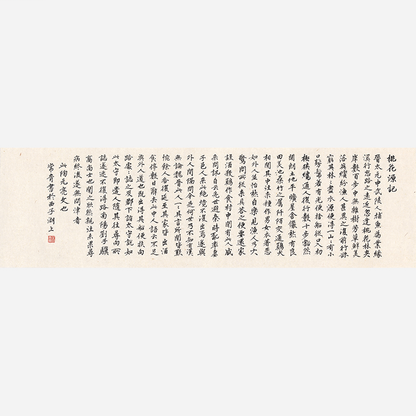 桃花源記
晉太元中武陵人捕魚為業緣
溪行忘路之遠近忽逢桃花林夾
岸數百步中無雜樹芳草鮮美
落英繽紛漁人甚異之復前行欲
窮其林林盡水源便得一山山有小
口髣髴若有光便捨船從口初
極狹纔通人復行數十步豁然
開朗土地平曠屋舍儼然有良
田美池桑竹之屬阡陌交通雞犬
相聞其中往來種作男女衣著悉
如外人並怡然自樂見漁人乃大
驚問所從來具答之便要還家
設酒殺雞作食村中聞有此人咸
來問訊自云先世避秦時亂率妻
子邑人來此絕境不復出焉遂與
外人間隔問今是何世乃不知有漢
無論魏晉此人一一具言所聞皆歎
惋餘人各復延至其家皆出酒
食停數日辭去此中人語云不足
為外人道也既出得其船便扶向
路處處誌之及郡下詣太守說如
此太守即遣人隨其往尋向所
誌遂迷不復得路南陽劉子驥
高尚士也聞之欣然親往未果尋
病終後遂無問津者
此陶元亮文也
書於西子湖上